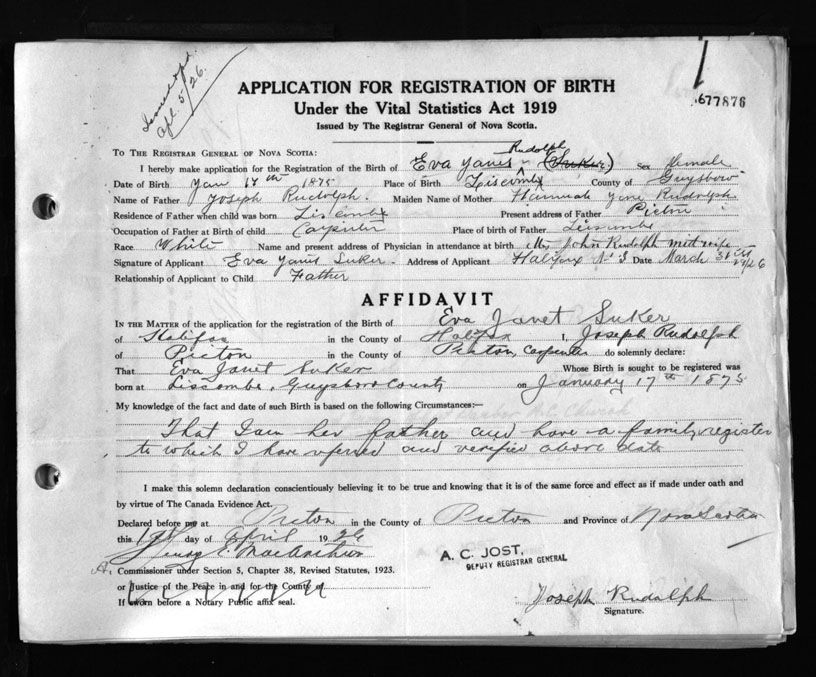 Apl 5/26.
677876
APPLICATION FOR REGISTRATION OF BIRTH
Under the Vital Statistics Act 1919
Issued by The Registrar General of Nova Scotia.
TO THE REGISTRAR GENERAL OF NOVA SCOTIA:
Rudolph
I hereby make application for the Registration of the Birth of Eva Janet (Suker) Sex female
Date of Birth Jan 17th 1875 Place of Birth Liscombe County of Guysboro
Name of Father Joseph Rudolph. Maiden Name of Mother Hannah Jane Rudolph
Residence of Father when child was born Liscombe Present address of Father Picton
Occupation of Father at Birth of child Carpenter Place of birth of Father Liscombe
Race White Name and present address of Physician in attendance at birth Mrs John Rudolph midwife
Signature of Applicant Eva Janet Suker. Address of Applicant Halifax N S Date March 31st 1926
Relationship of Applicant to Child Father
AFFIDAVIT
IN THE MATTER of the application for the registration of the Birth of Eva Janet Suker
of Halifax in the County of Halifax I, Joseph Rudolph
of Picton in the County of Picton, Carpenter do solemnly declare:
That Eva Janet Suker Whose Birth is sought to be registered was
born at Liscombe, Guysboro County on January 17th 1875
My knowledge of the fact and date of such Birth is based on the following Circumstances:—
That I am her father and have a family register
to which I have referred and verified above date
I make this solemn declaration conscientiously believing it to be true and knowing that it is of the same force and effect as if made under oath and
by virtue of The Canada Evidence Act.
Declared before me at Picton in the County of Picton and Province of Nova Scotia
this 1st day of April 1926
Henry E. MacArthur
A. C. JOST,
DEPUTY REGISTRAR GENERAL
A Commissioner under Section 5, Chapter 38, Revised Statutes, 1923.
or Justice of the Peace in and for the County of
If sworn before a Notary Public affix seal.
Joseph Rudolph
Signature.